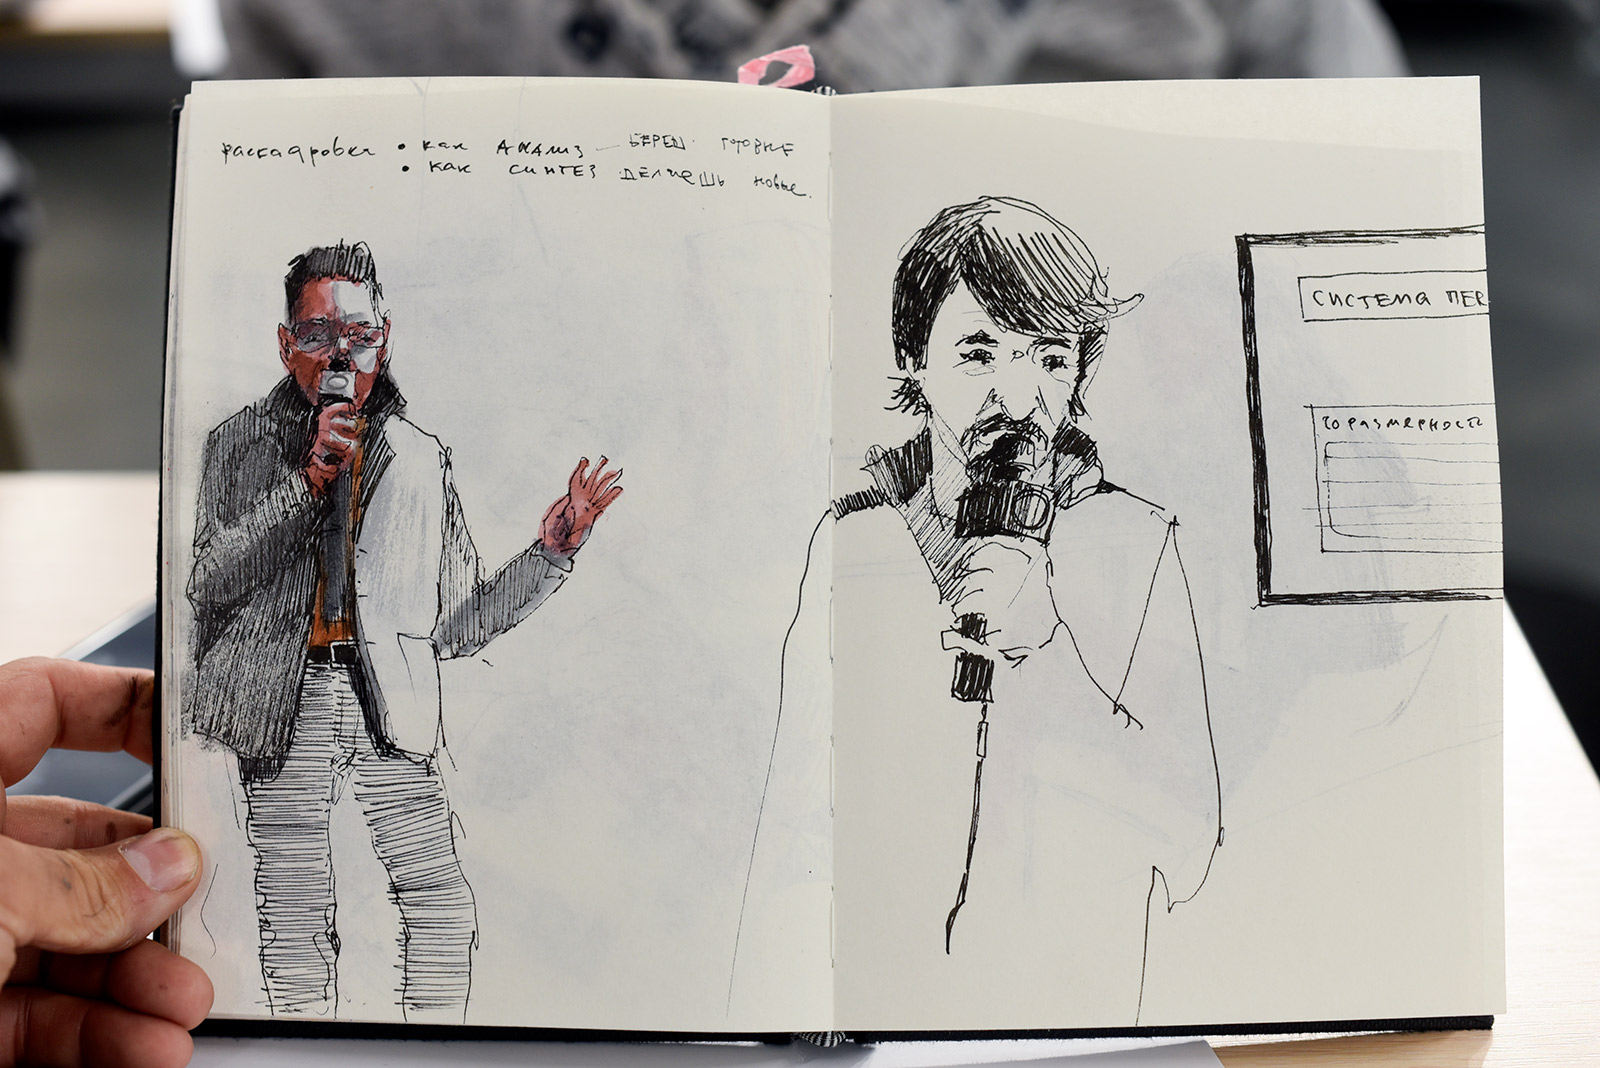 раскадровка • как анализ — берешь готовые
• как синтез делаешь новые.
СИСТЕМА ПЕР
соразмерность